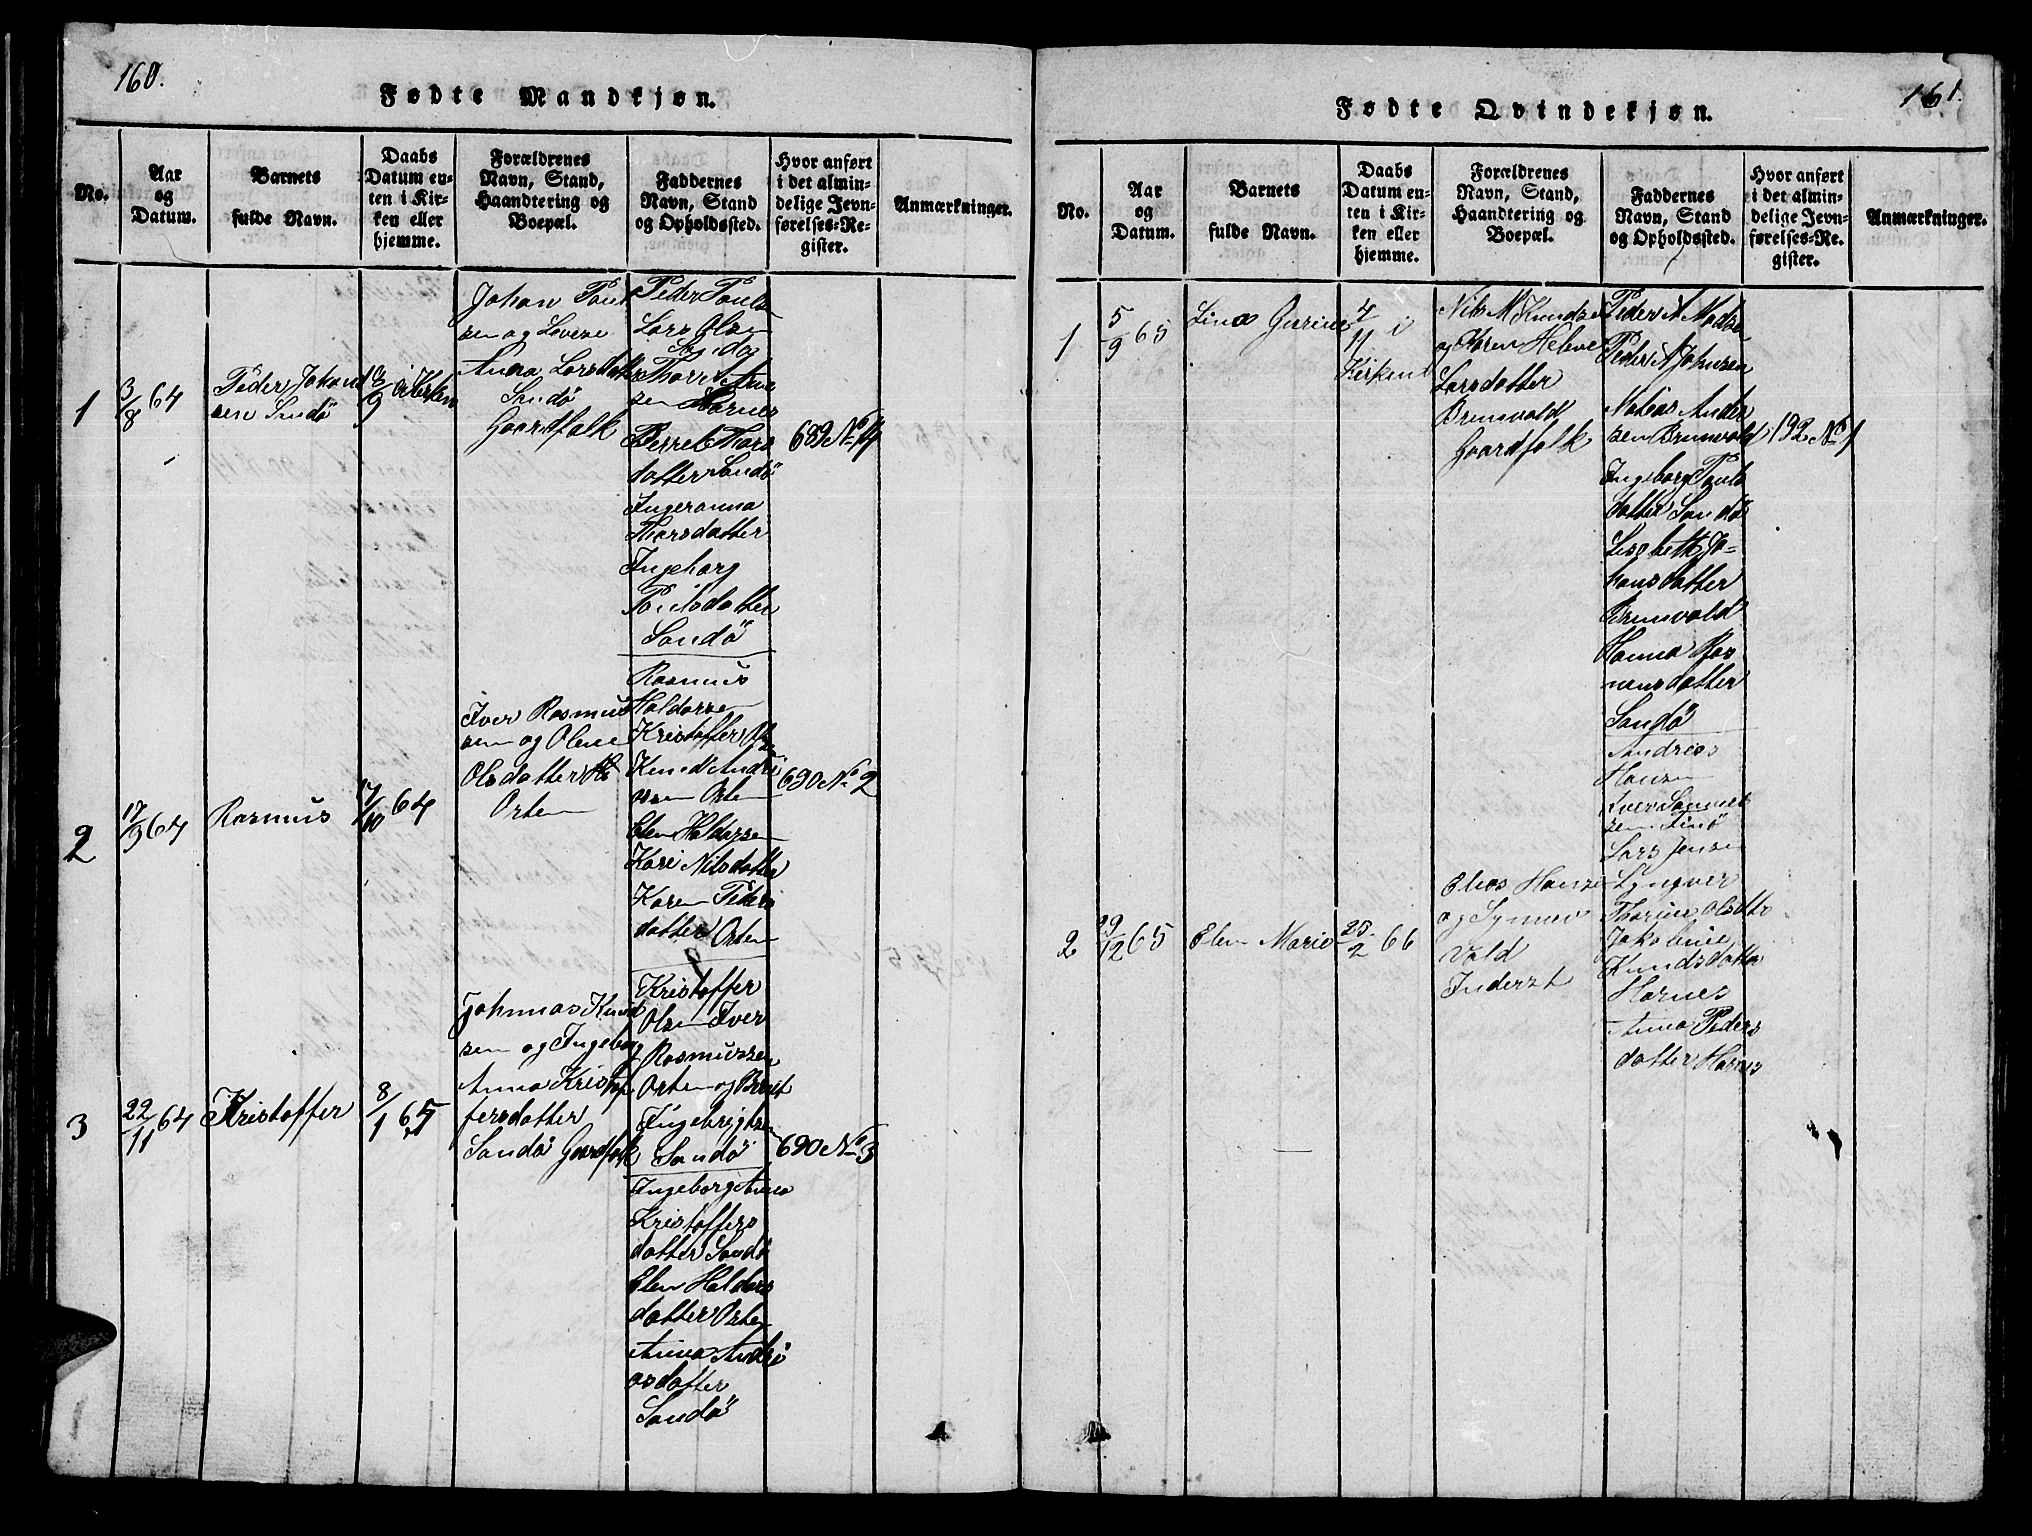 160.
Fødte Mandkjøn.
No.
Aar
og
Datum.
Barnets
fulde Navn.
Daabs
Datum en-
ten i Kir-
ken eller
hjemme.
Forældrenes
Navn, Stand,
Haandtering og
Boepæl.
Faddernes
Navn, Stand
og Opholdssted.
Hvor anført
i det almin-
delige Jevn-
førelses-Re-
gister.
Anmærkninger.
1
3/8 64
Peder Johand
sen Sandö
i Kirken
Johan Poul
sen og Lovese
Anna Larsdatter
Sandö
Gaardfolk
Peder Pouls
Lars Olsen
Sandö
Harnes
Thors
datter Sandö
Ingeranna
Thorsdatter
Ingeborg
Poulsdatter
Sandö
689 No
2
17/9 64
Rasmus
64
Iver Rasmus
sen og Olene
Olsdatter
Orten
Rasmus
Haldorsen
Kristoffer
Knud Andri
asen Orten
Elen Haldorsen
Kari Nilsdatter
Karen Peders
datter Orten
690 No 2
3
22/11 64
Kristoffer
8/1 65
Johannas Knud
sen og Ingeborg
Anna Kristof
fersdatter
Sandö Gaardfolk
Kristoffer
Olsen Iver
Rasmussen
Orten og Bernt
Ingebrigtsen
Sandö
Ingeborg Anna
Kristoffers
datter Sandö
Elen Haldors
datter Orten
Anna Andri
asdatter
Sandö
690 No 3
161.
Fødte Qvindekjøn.
No.
Aar
og
Datum.
Barnets
fulde Navn.
Daabs
Datum en-
ten i Kir-
ken eller
hjemme.
Forældrenes
Navn, Stand,
Haandtering og
Boepæl.
Faddernes
Navn, Stand
og Opholdssted.
Hvor anført
i det almin-
delige Jevn-
førelses-Re-
gister.
Anmærkninger.
1
5/9 65
Lina Gurine
4/11 i
Kirken
Nils M Knudsen
og Karen Helene
Larsdatter
Brunvold
Gaardfolk
Peder A Madsen
Peder A Johnsen
Mateas Ander
sen Brunvold
Ingeborg Pouls
datter Sandö
Lisabeth Jo-
hansdatter
Brunvold
Hanna
datter
Sandö
192 No 1
2
29/12 65
Elen Marie
25/2 66
Elias Hansen
og Synnev
Vold
Inderst
Andreas
Hansen
Iver Sammel
sen Finö
Lars Jensen
Lyngver
Thorine Olsdtr
Jakobine
Knudsdatter
Harnes
Anna Peders
datter Harnes